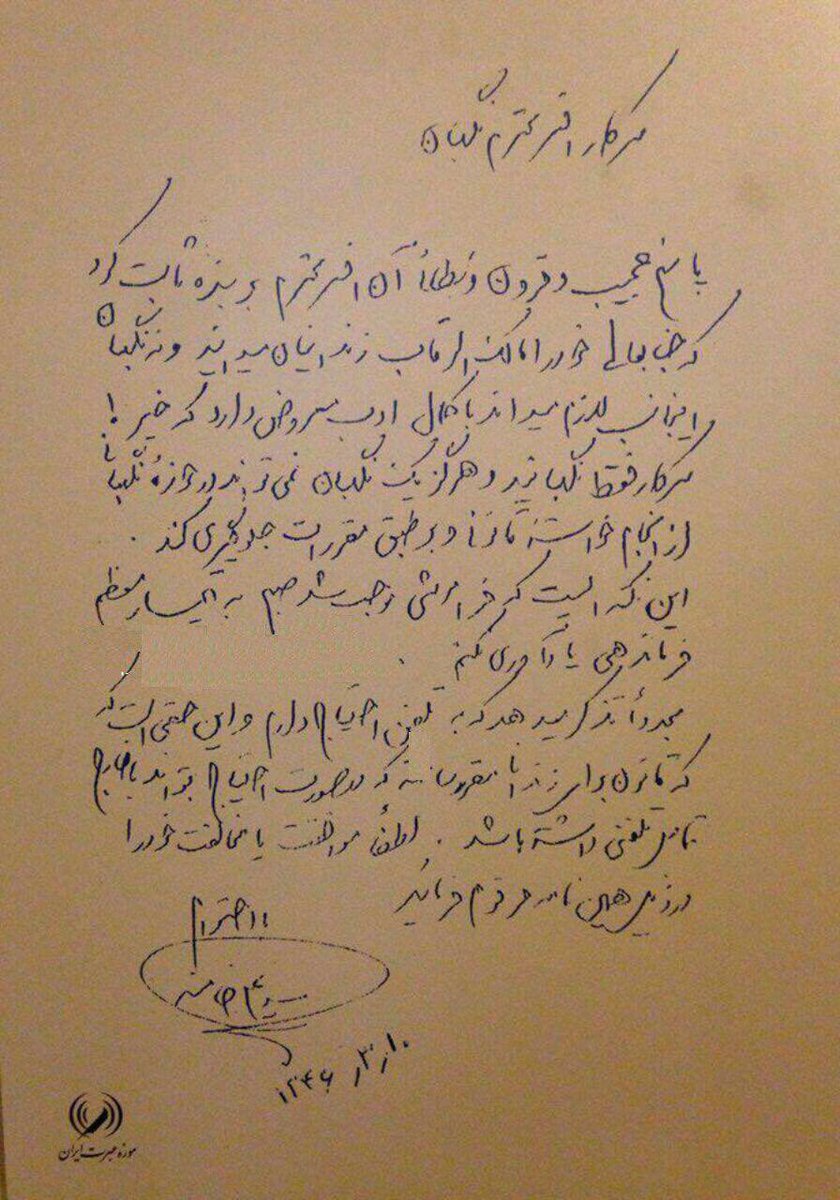 سرکار افسر محترم نگهبان
پاسخ عجیب و قرون وسطائی آن افسر محترم بر بنده ثابت کرد
که جنابعالی خود را مالک الرقاب زندانیان میدانید و نه نگهبان
اینجانب لازم میداند با کمال ادب معروض دارد که خیر!
سرکار فقط نگهبانید و هرگز یک نگهبان نمی تواند در حوزهٔ نگهبانی
از انجام خواسته قانونی و بر طبق مقررات جلوگیری کند.
این نکته ایست که فراموشی موجب شد صبح به تیمسار معظم
فرماندهی یادآوری کنم.
مجدداً تذکر میدهد که به تلفن احتیاج دارم و این حقی است که
که قانون برای زندانی مقرر داشته که در صورت احتیاج بتواند با خارج
تماس تلفنی داشته باشد. لطفاً موافقت یا مخالفت خود را
در ذیل همین نامه مرقوم فرمائید
با احترام
سید علی خامنه
۱۰ر۳ر۱۳۴۶
موزه عبرت ایران